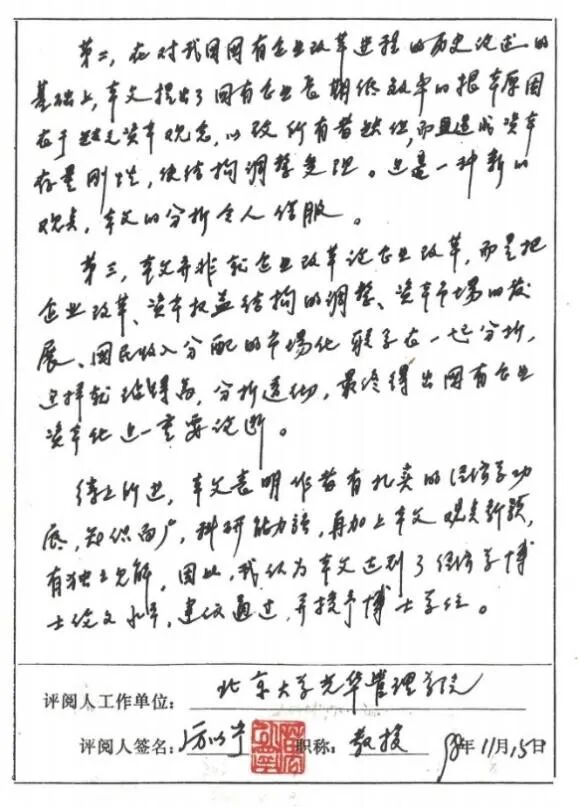 第二，在对我国国有企业改革进程的历史论述的
基础上，本文提出了国有企业长期低效率的根本原因
在于缺乏资本观念，以致所有者缺位，而且造成资本
存量刚性，使结构调整受阻。这是一种新的
观点，本文的分析令人信服。
第三，本文并非就企业改革论企业改革，而是把
企业改革、资本权益结构的调整、资本市场的发
展、国民收入分配的市场化联系在一起分析，
这样就站得高，分析透彻，最终得出国有企业
资本化这一重要论断。
综上所述，本文表明作者有扎实的经济学功
底，知识面广，科研能力强，再加上本文观点新颖，
有独立见解，因此，我认为本文达到了经济学博
士论文水平，建议通过，并授予博士学位。
评阅人工作单位：北京大学光华管理学院
评阅人签名：厉以宁 职称：教授 98年11月15日